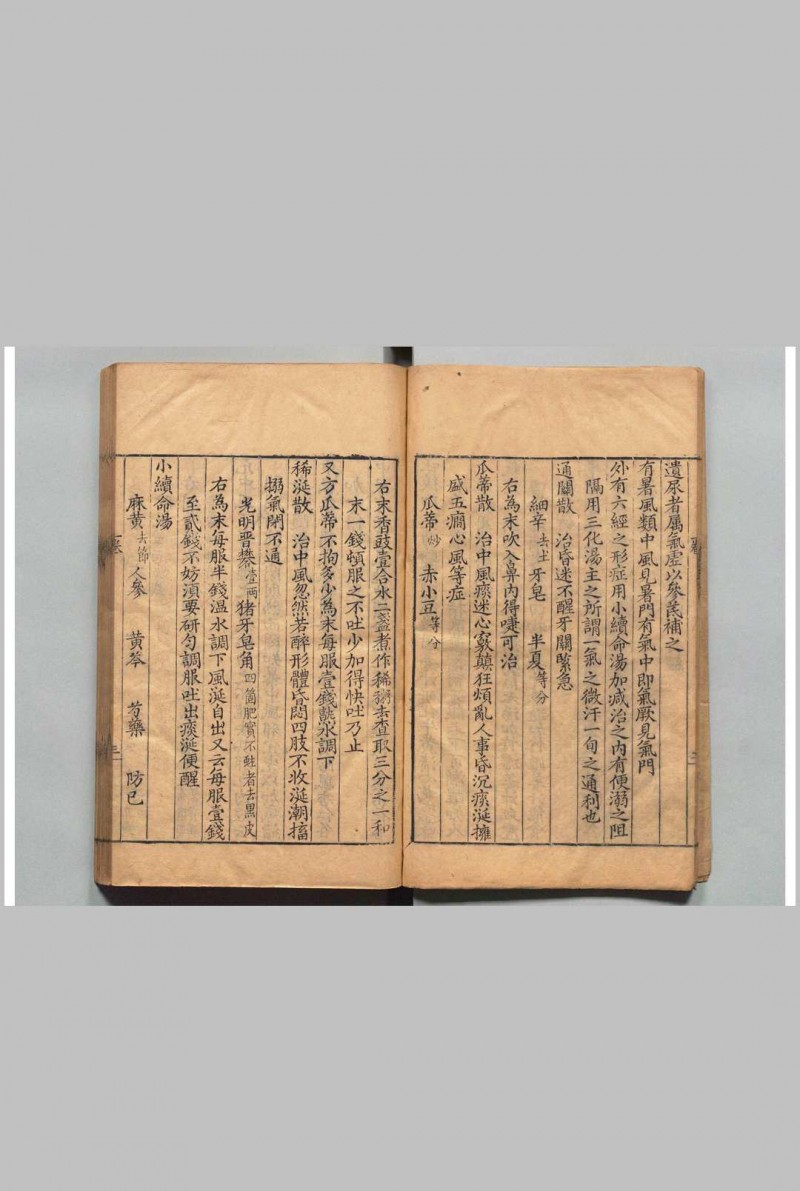 遺尿者屬氣虛以參芪補之
有暑風類中風見暑門有氣中即氣厥見氣門
外有六經之形症用小續命湯加减治之内有便溺之阻
隔用三化湯主之所謂一氣之微汗一旬之通利也
通關散　治昏迷不醒牙關緊急
細辛去土　牙皂　半夏等分
右為末吹入鼻内得嚏可治
瓜蒂散　治中風痰迷心竅顛狂煩亂人事昏沉痰涎擁
盛五癇心風等症
瓜蒂炒　赤小豆等分
右末香豉壹合水二盞煮作稀粥去查取三分之一和
末一錢頓服之不吐少加得快吐乃止
又方瓜蒂不拘多少為末每服壹錢虀水調下
稀涎散　治中風忽然若醉形體昏悶四肢不收涎潮搐
搦氣閉不通
光明晋礬壹兩　猪牙皂角四箇肥實不蛀者去黑皮
右為末每服半錢温水調下風涎自出又云每服壹錢
至貳錢不妨湏要研勻調服吐出痰涎便醒
小續命湯
麻黄去節　人參　黄芩　芍藥　防己